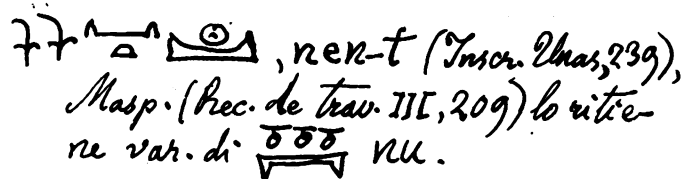 , nen-t (Inscr. Unas, 239),
Masp. (Rec. de trav. III, 209) lo ritie-
ne var. di nu.